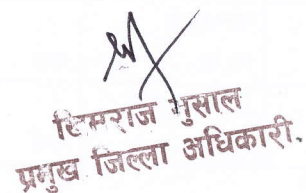 टिमराज भुसाल
प्रमुख जिल्ला अधिकारी.